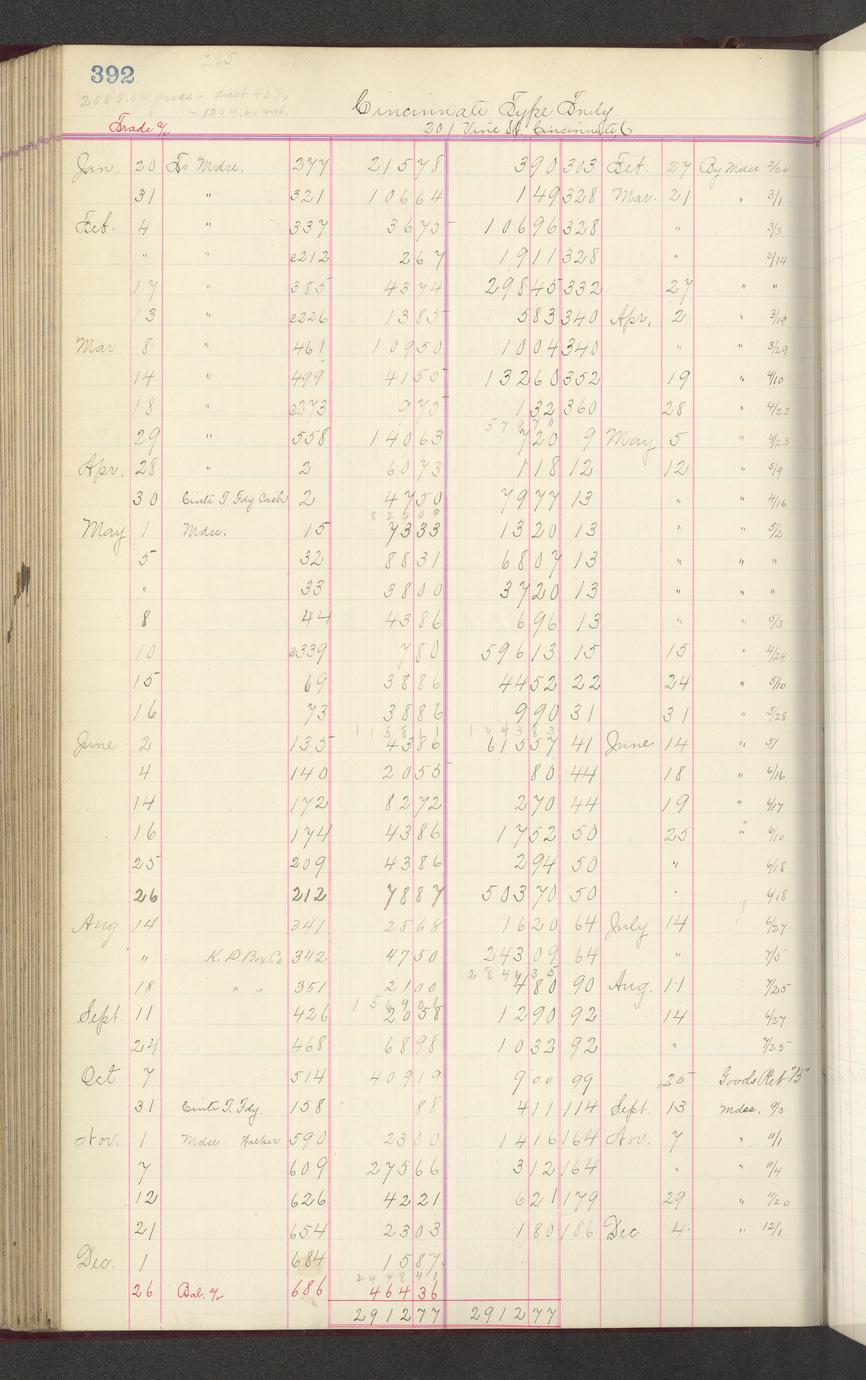 392
265
2000.00 gross - disct 40%
- 1200.00 net.
Cincinnati Type Fndy
Trade a/c 201 Vine St. Cincinnati O
Jan. 20 To Mdse. 277 215 78 3 90 303 Feb. 27 By Mdse 2/20
31 " 321 106 64 1 49 328 Mar. 21 " 3/1
Feb. 4 " 337 36 75 106 96 328 " 3/3
" " c212 2 67 19 11 328 " 3/14
17 " 385 43 74 298 45 332 27 " "
13 " c226 13 85 5 83 340 Apr. 2 " 3/19
Mar 8 " 461 109 50 10 04 340 " " 3/29
14 " 499 41 50 132 60 352 19 " 4/10
18 " c273 9 75 1 32 360 28 " 4/22
29 " 558 140 63 7 20 9 May 5 " 4/23
Apr. 28 " 2 60 73 1 18 12 12 " 5/9
30 Cinti T. Fdy Cash 2 47 50 79 77 13 " " 4/16
May 1 Mdse. 15 73 33 13 20 13 " " 5/2
5 32 88 31 68 07 13 " " "
" 33 38 00 37 20 13 " " "
8 44 43 86 6 96 13 " " 5/3
10 c339 7 80 596 13 15 15 " 4/24
15 69 38 86 44 52 22 24 " 5/10
16 73 38 86 9 90 31 31 " 5/28
1158 61 1443 83
June 2 135 43 86 615 57 41 June 14 " 5/
4 140 20 55 80 44 18 " 6/16
14 172 82 72 2 70 44 19 " 6/17
16 174 43 86 17 52 50 25 " 6/10
25 209 43 86 2 94 50 " 6/18
26 212 78 87 503 70 50 " 6/18
Aug 14 341 25 68 16 20 64 July 14 6/27
" K. D. Box Co 342 47 50 243 09 64 " 7/5
2844 35
18 " " 351 21 00 4 80 90 Aug. 11 7/25
1569 01
Sept. 11 426 20 58 12 90 92 14 6/27
24 468 68 98 10 32 92 " 7/25
Oct 7 514 409 19 9 00 99 25 Goods Ret "B"
31 Cinti T. Fdy. 158 88 4 11 114 Sept. 13 Mdse. 9/3
Nov. 1 Mdse. Walker 590 23 00 14 16 164 Nov. 7 " 11/1
7 609 275 66 3 12 164 " " 11/4
12 626 42 21 6 21 179 29 " 11/20
21 654 23 03 1 80 186 Dec 4 " 12/1
Dec. 1 684 15 87
2448 41
26 Bal. a/c 686 464 36
2912 77 2912 77